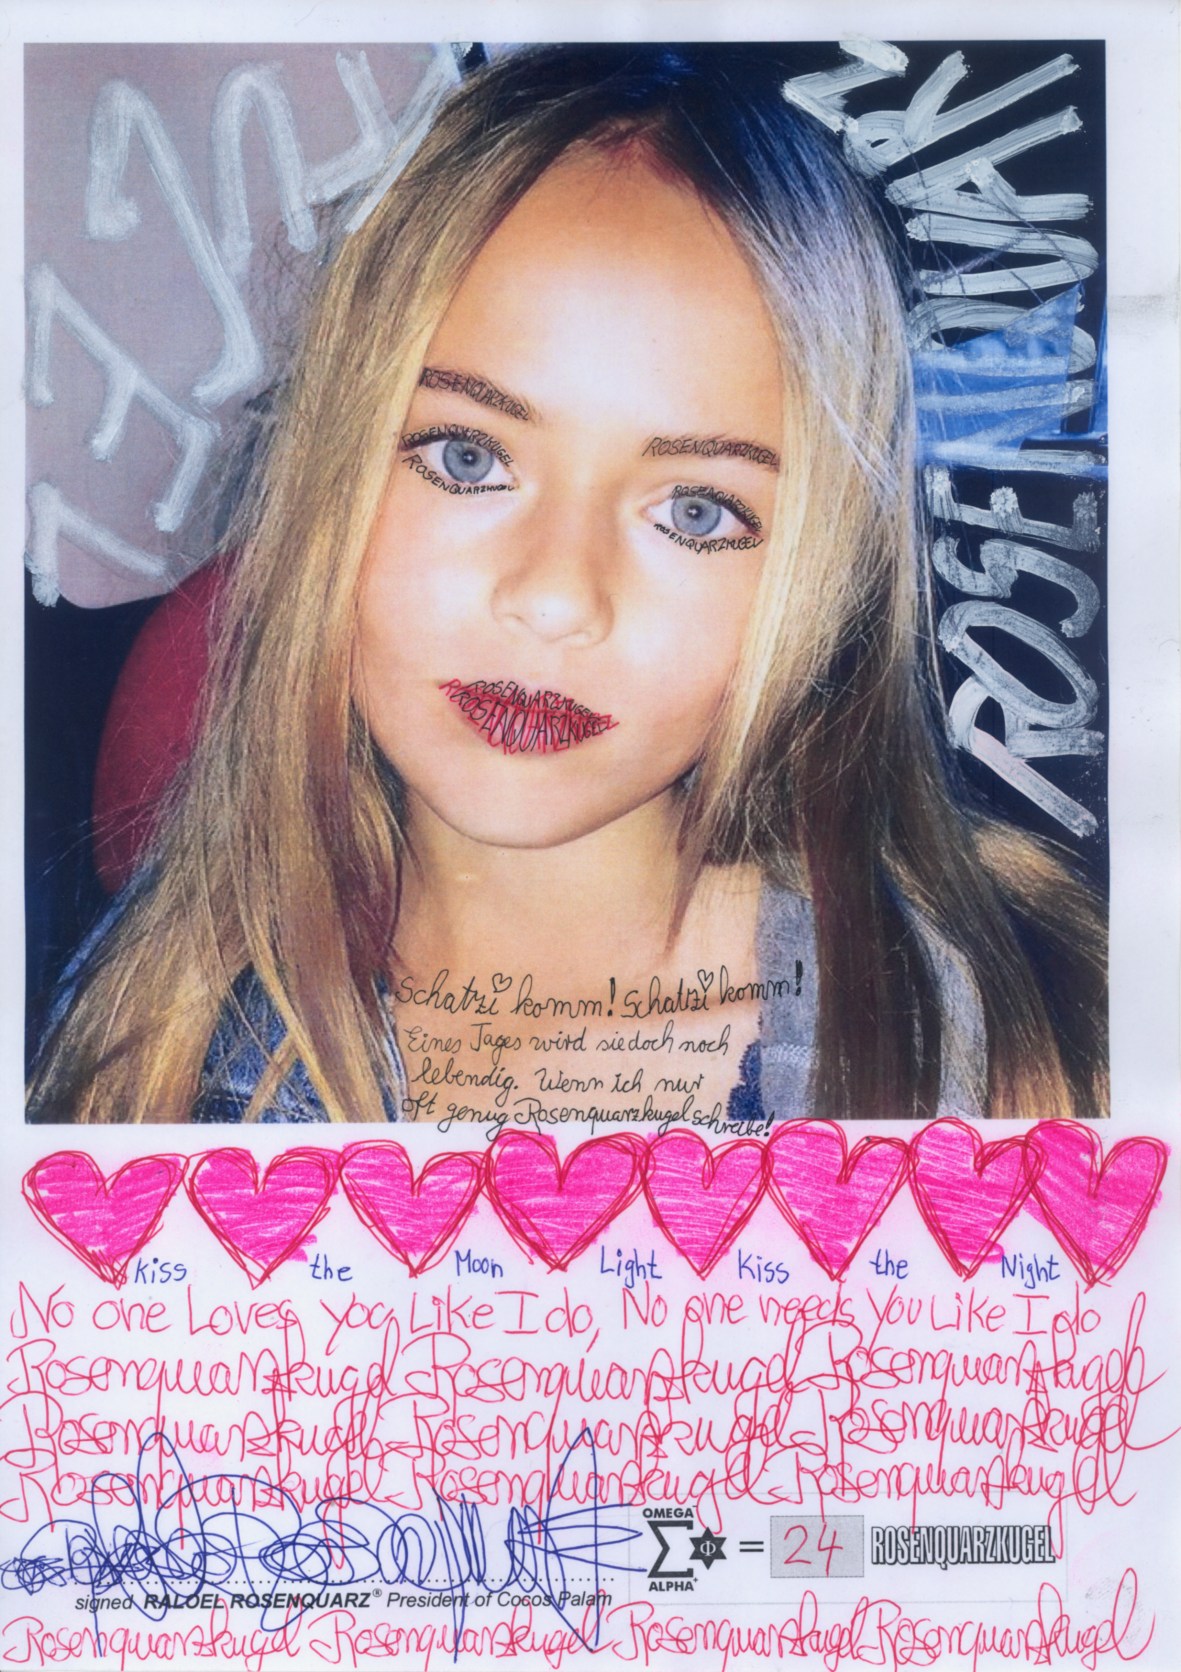 ROSENQUARZKUGEL
ROSENQUARZKUGEL
ROSENQUARZKUGEL
ROSENQUARZKUGEL
ROSENQUARZKUGEL
ROSENQUARZKUGEL
ROSENQUARZKUGEL
ROSENQUARZKUGEL
Schatzi komm! Schatzi komm!
Eines Tages wird sie doch noch
lebendig. Wenn ich nur
oft genug Rosenquarzkugel schreibe!
Kiss the Moon Light Kiss the Night
No one Loves you Like I do, No one needs You Like I do
Rosenquarzkugel Rosenquarzkugel Rosenquarzkugel
Rosenquarzkugel Rosenquarzkugel Rosenquarzkugel
Rosenquarzkugel Rosenquarzkugel Rosenquarzkugel
OMEGA
Σ Φ = 24 ROSENQUARZKUGEL
ALPHA
signed RALOEL ROSENQUARZ® President of Cocos Palam
Rosenquarzkugel Rosenquarzkugel Rosenquarzkugel Rosenquarzkugel